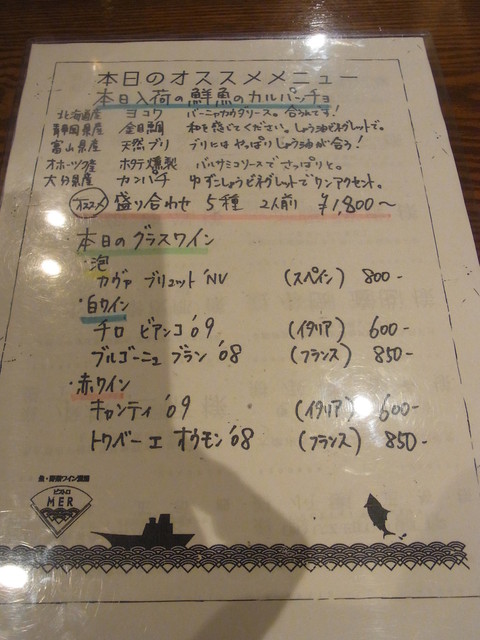 本日のオススメメニュー
本日入荷の鮮魚のカルパッチョ
北海道産 ヨコワ バーニャカウダソース。合うんです!
静岡県産 金目鯛 和を感じてください。しょう油ビネグレットで。
富山県産 天然ブリ ブリにはやっぱりしょう油が合う!
オホーツク産 ホタテ燻製 バルサミコソースでさっぱりと。
大分県産 カンパチ ゆずこしょうビネグレットでワンアクセント。
オススメ 盛り合わせ 5種 2人前 ¥1,800〜
本日のグラスワイン
・泡
カヴァ ブリュット 'NV (スペイン) 800-
・白ワイン
チロ ビアンコ '09 (イタリア) 600-
ブルゴーニュ ブラン '08 (フランス) 850-
・赤ワイン
キャンティ '09 (イタリア) 600-
トワベーエ オウモン '08 (フランス) 850-
魚・野菜ワイン酒場
ビストロ
MER